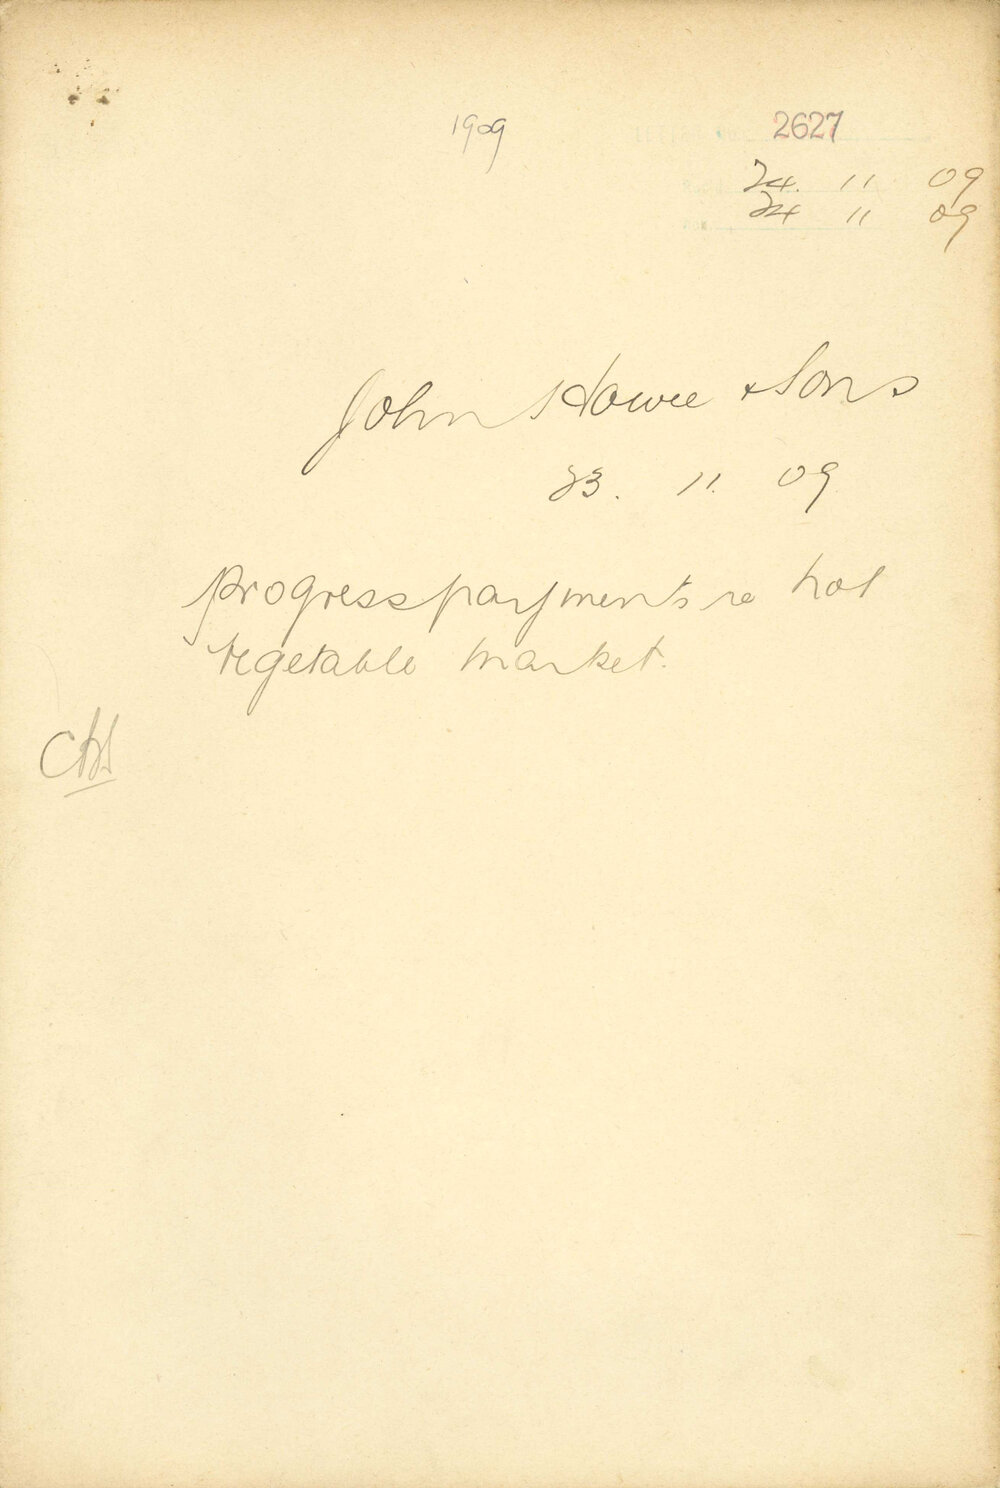 1909
2627
24. 11 09
24 11 09
John Howie & Sons
23. 11. 09
progress payments re
vegetable market.